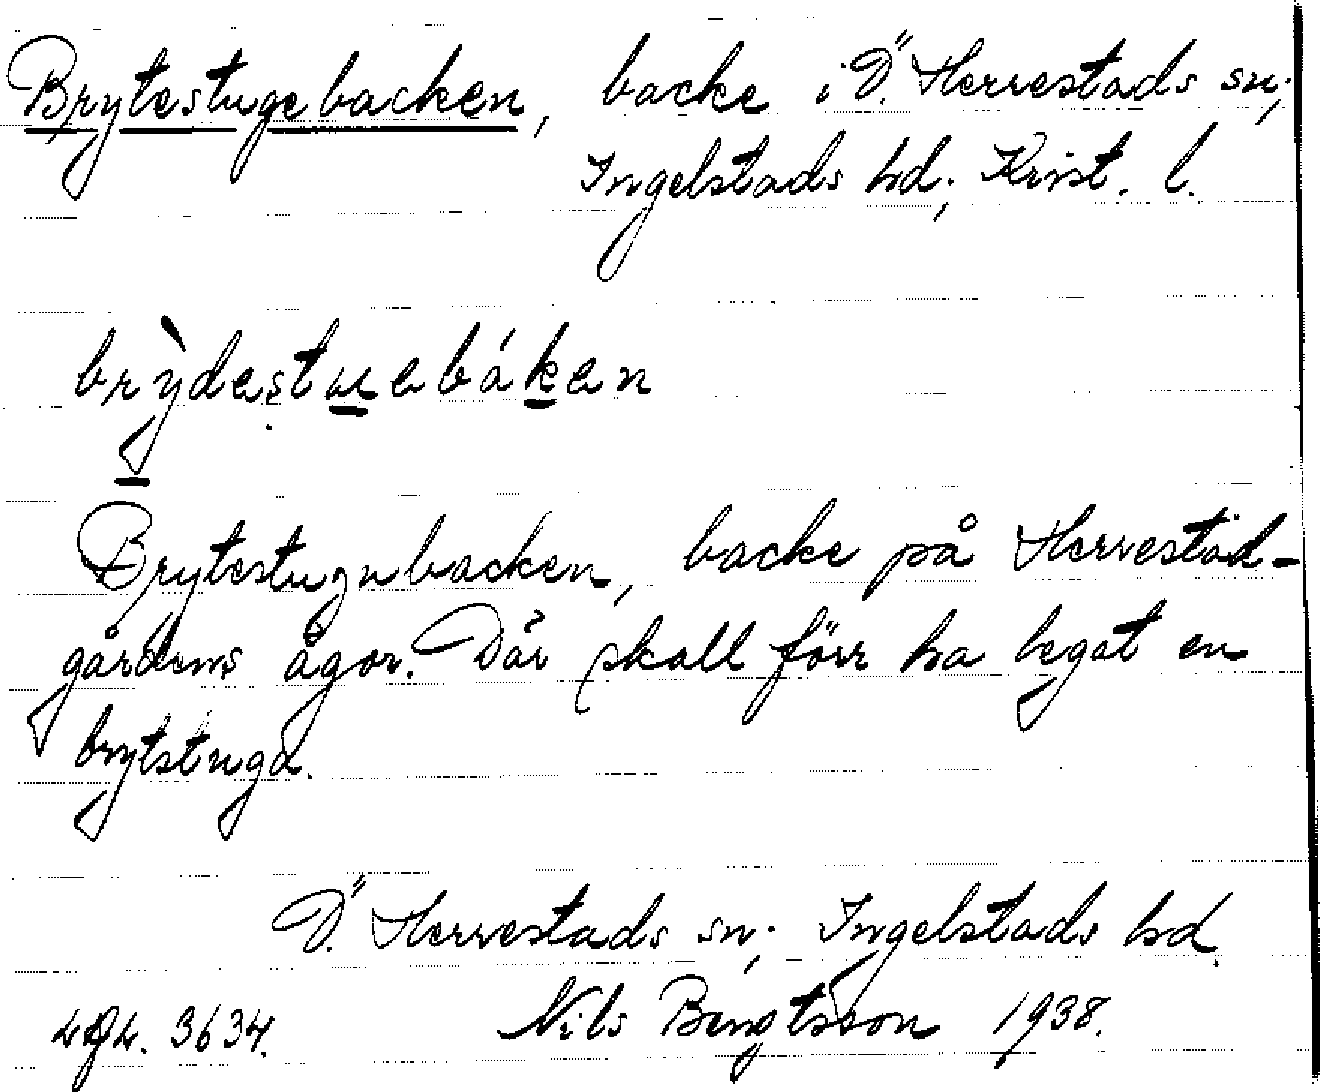 Brytestugebacken, backe i Ö. Herrestads sn;
Ingelstads hd; Krist. l.
brỳdestuebáken
Brytestugubacken, backe på Herrestad-
gårdens ägor. Där skall förr ha legat en
brytstuga.
Ö. Herrestads sn; Ingelstads hd.
3634. Nils Bengtsson 1938.